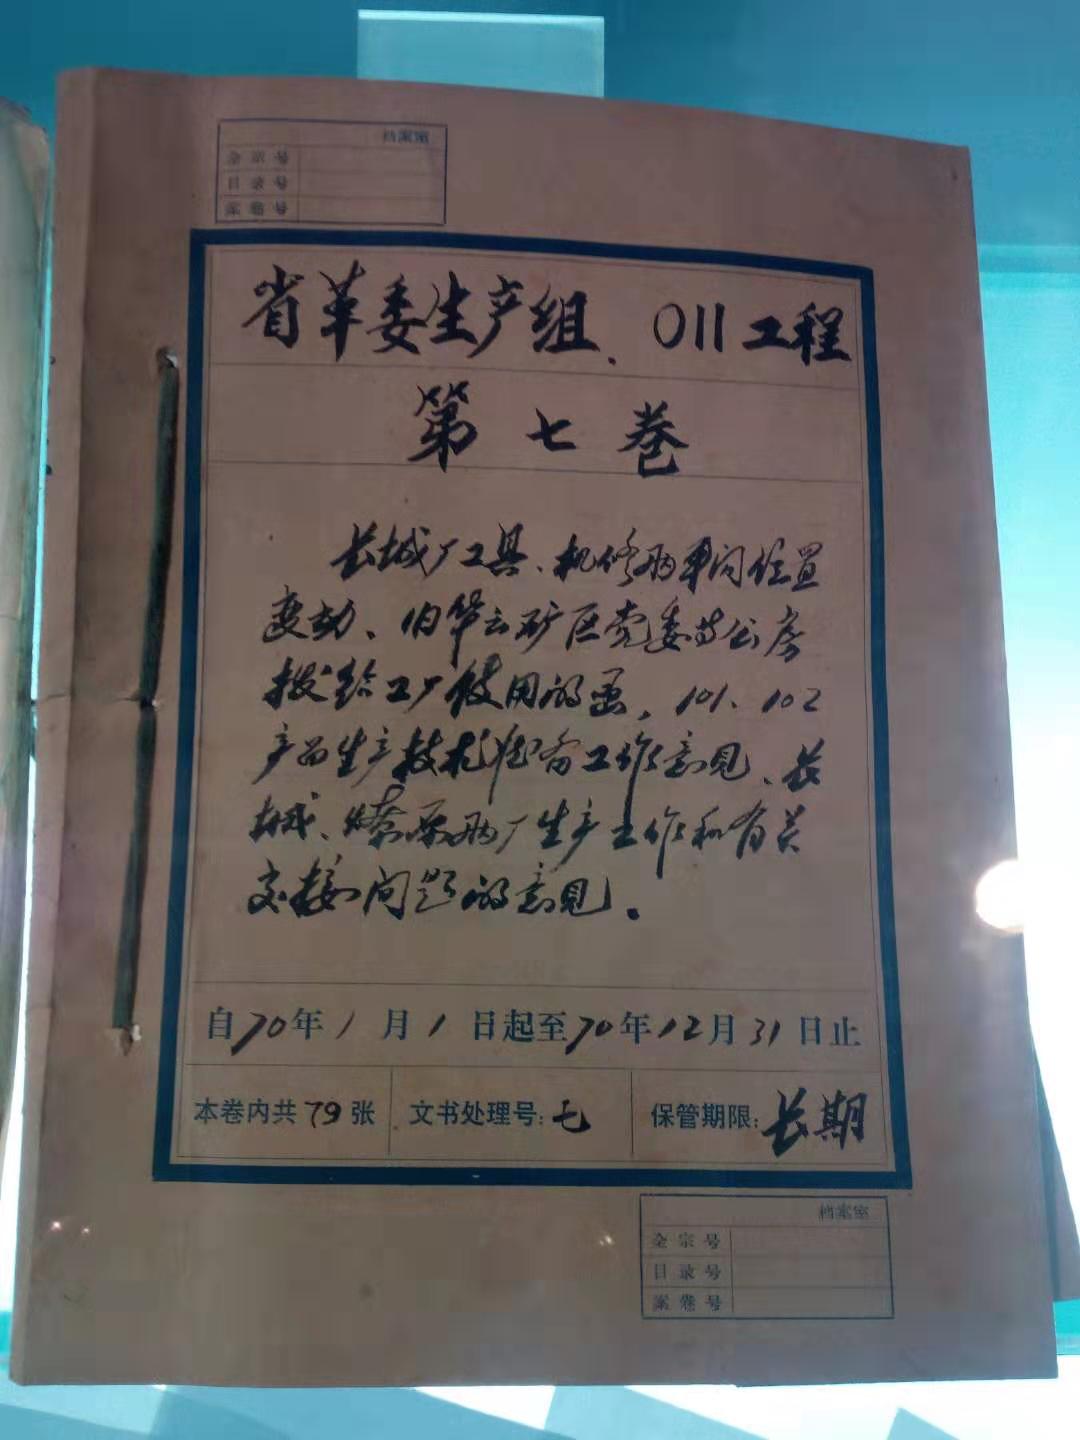 档案室
全宗号
目录号
案卷号
省革委生产组、011工程
第七卷
长城厂工具、机修两车间位置
变动、伯华云矿区党委等公房
拨给工厂使用的函、101、102
产品生产技术准备工作意见、长
城、燎原两厂生产工作和有关
交接问题的意见。
自70年1月1日起至70年12月31日止
本卷内共79张 文书处理号:七 保管期限:长期
档案室
全宗号
目录号
案卷号